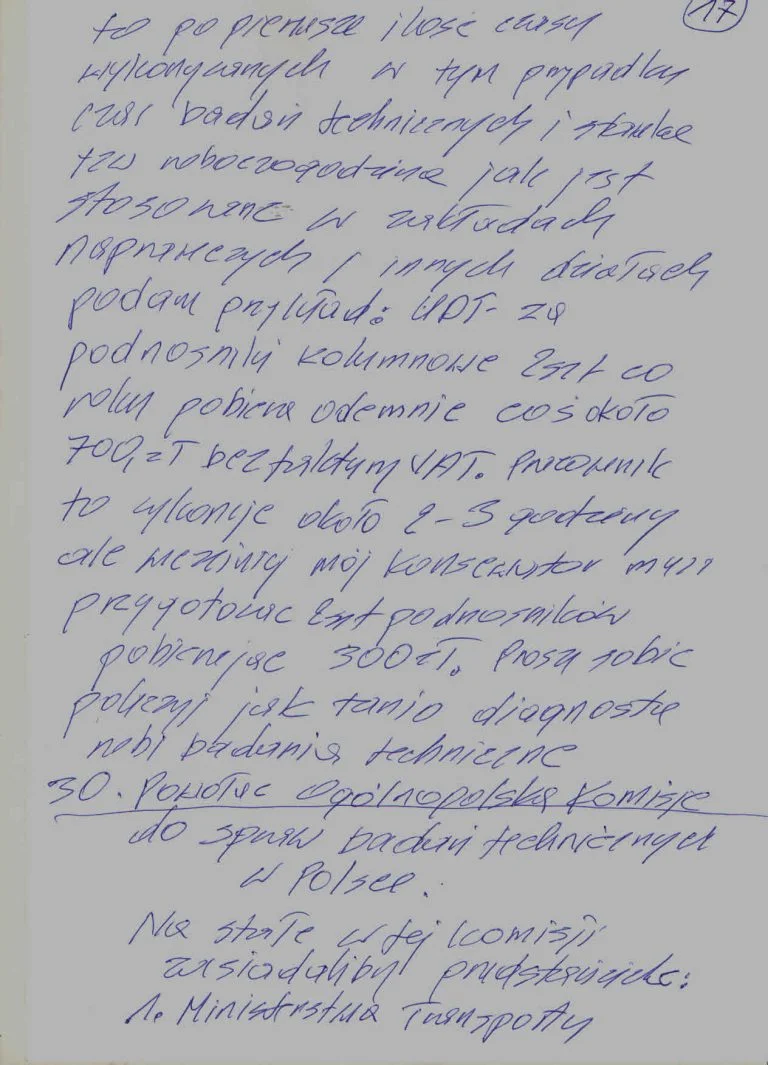 17
to po pierwsze ilość czasu
wykonywanych w tym przypadku
czas badań technicznych i stawka
tzw roboczogodzina jak jest
stosowane w zakładach
naprawczych i innych działach
podam przykład: UDT- za
podnośniki kolumnowe 2szt co
roku pobiera odemnie coś około
700,zł bez faktury VAT. Pracownik
to wykonuje około 2-3 godziny
ale wcześniej mój konserwator musi
przygotować 2szt podnośników
pobierając 300zł. Proszę sobie
policzyć jak tanio diagnosta
robi badania techniczne
30. Powołać Ogólnopolską Komisję
do spraw badań technicznych
w Polsce.
Na stałe w tej komisji
zasiadaliby przedstawiciele:
1. Ministerstwa Transportu